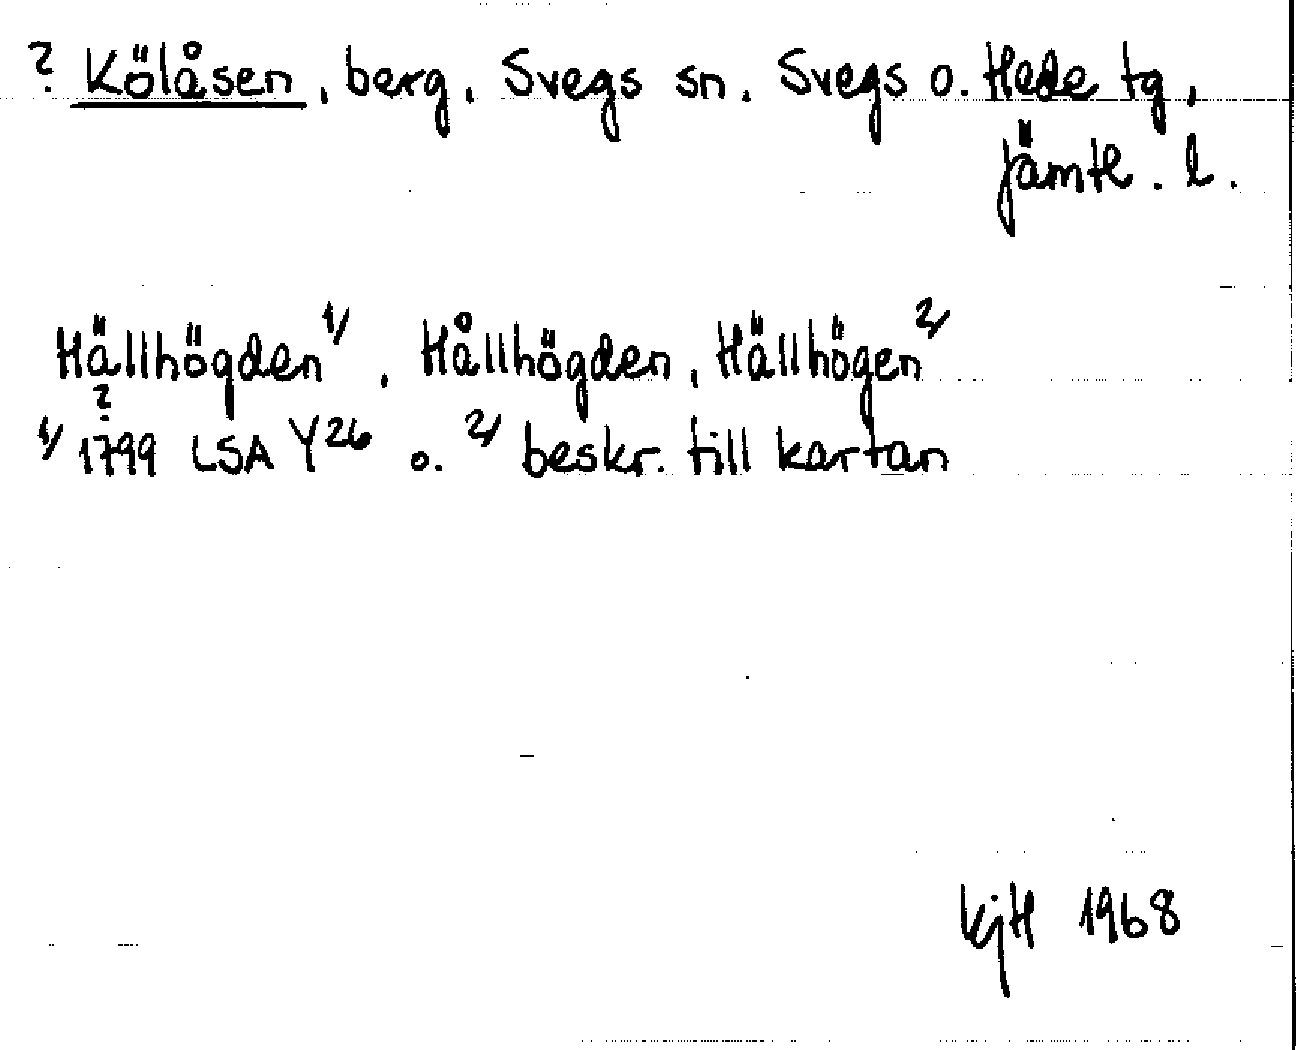 ? Kölåsen, berg, Svegs sn, Svegs o. Hede tg,
Jämtl. l.
Hällhögden 1/, Hållhögden, Hällhögen 2/
?
1/ 1799 LSA Y26 o. 2/ beskr. till kartan
KjH 1968